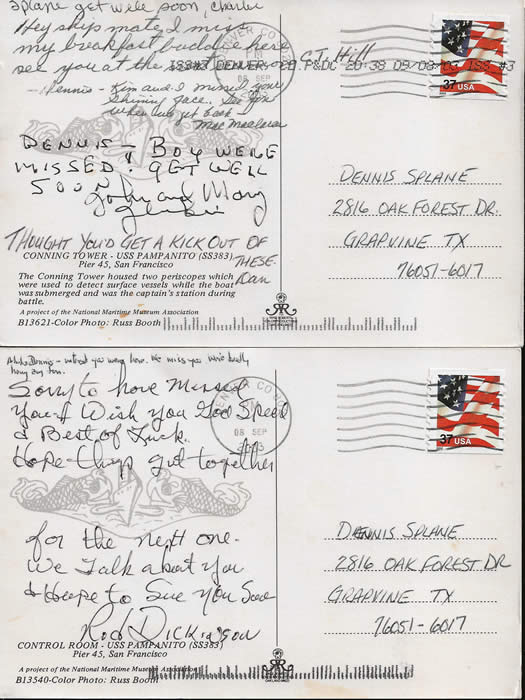 Splane get well soon, Charlie
Hey shipmate I miss
my breakfast buddie here
see you at the
C.J. Hill
DENVER CO
08 SEP
ISS#3 DENVER P&DC 20:38 09/08/03 ISS #3
37 USA
Dennis - Kim and I missed your
shining face. See you
when we get back
Mac
DENNIS - BOY WERE
MISSED. GET WELL
SOON
John and Mary
THOUGHT YOU'D GET A KICK OUT OF
THESE
Dan
CONNING TOWER - USS PAMPANITO (SS383)
Pier 45, San Francisco
The Conning Tower housed two periscopes which
were used to detect surface vessels while the boat
was submerged and was the captain's station during
battle.
A project of the National Maritime Museum Association
B13621-Color Photo: Russ Booth
DENNIS SPLANE
2816 OAK FOREST DR.
GRAPVINE TX
76051-6017
Dennis - you were here. We miss you
Sorry to have missed
You I Wish you God Speed
& Best of Luck.
Hope things get together
for the next one.
We Talk about you
& Hope to See you Soon
Rod Dickinson
DENVER CO
08 SEP
2003
37 USA
CONTROL ROOM - USS PAMPANITO (SS383)
Pier 45, San Francisco
A project of the National Maritime Museum Association
B13540-Color Photo: Russ Booth
DENNIS SPLANE
2816 OAK FOREST DR
GRAPVINE TX
76051-6017